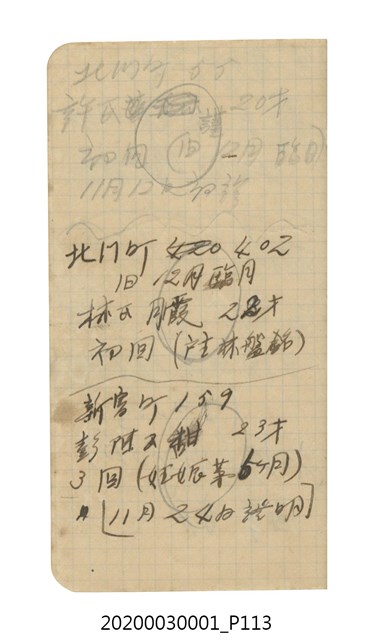 北門町 155
許氏 謹 20才
初回 (旧 12月臨月)
11月12日初診
北門町 420 402
旧12月臨月
林氏月霞 22才
初回 (戸主林盤銘)
新富町 159
彭陳玉甜 23才
3回 (妊娠第6ヶ月)
[11月24日證明]
20200030001_P113